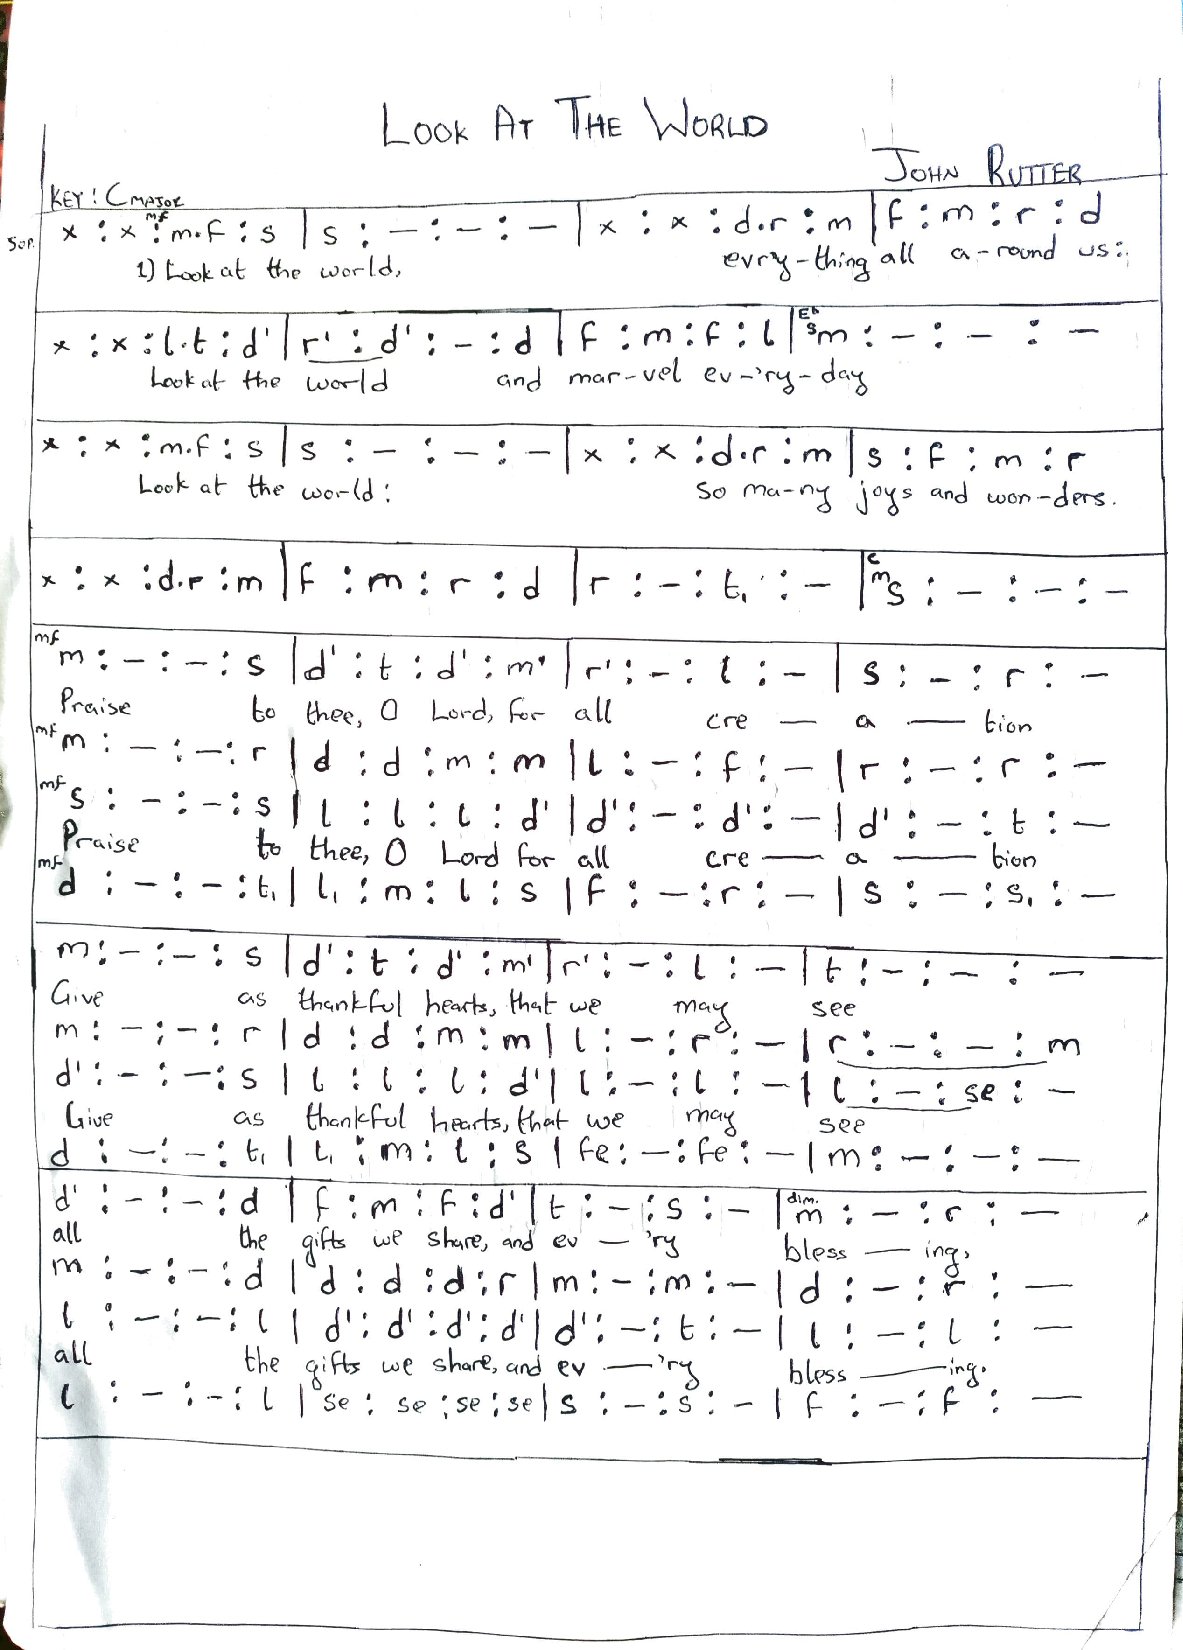 LOOK AT THE WORLD
JOHN RUTTER
KEY: C MAJOR
mf
Sop. x : x : m.f : s | s : – : – : – | x : x : d.r : m | f : m : r : d
1) Look at the world, evry-thing all a-round us:
Eb
x : x : l.t : d' | r' : d' : – : d | f : m : f : l | sm : – : – : –
Look at the world and mar-vel ev-'ry-day
x : x : m.f : s | s : – : – : – | x : x : d.r : m | s : f : m : r
Look at the world: So ma-ny joys and won-ders.
C
x : x : d.r : m | f : m : r : d | r : – : t₁ : – | ms : – : – : –
mf m : – : – : s | d' : t : d' : m' | r' : – : l : – | s : – : r : –
Praise to thee, O Lord, for all cre – a – tion
mf m : – : – : r | d : d : m : m | l : – : f : – | r : – : r : –
mf s : – : – : s | l : l : l : d' | d' : – : d' : – | d' : – : t : –
Praise to thee, O Lord for all cre – a – tion
mf d : – : – : t₁ | l₁ : m : l : s | f : – : r : – | s : – : s₁ : –
m : – : – : s | d' : t : d' : m' | r' : – : l : – | t : – : – : –
Give as thankful hearts, that we may see
m : – : – : r | d : d : m : m | l : – : r : – | r : – : – : m
d' : – : – : s | l : l : l : d' | l : – : l : – | l : – : se : –
Give as thankful hearts, that we may see
d : – : – : t₁ | l₁ : m : l : s | fe : – : fe : – | m : – : – : –
dim.
d' : – : – : d | f : m : f : d' | t : – : s : – | m : – : r : –
all the gifts we share, and ev – 'ry bless – ing,
m : – : – : d | d : d : d : r | m : – : m : – | d : – : r : –
l : – : – : l | d' : d' : d' : d' | d' : – : t : – | l : – : l : –
all the gifts we share, and ev – 'ry bless – ing.
l : – : – : l | se : se : se : se | s : – : s : – | f : – : f : –